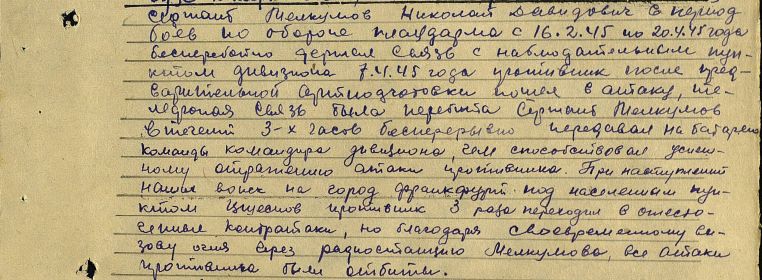 Сержант Мелкумов Николай Давидович в период
боев по обороне плацдарма с 16.2.45 по 20.4.45 года
бесперебойно держал связь с наблюдательным пун-
ктом дивизиона 7.4.45 года противник после пред-
варительной артподготовки пошел в атаку, те-
лефонная связь была перебита Сержант Мелкумов
в течении 3-х часов беспрерывно передавал на батарею
команды командира дивизиона, чем способствовал успеш-
ному отражению атаки противника. При наступлении
наших войск на город Франкфурт под населенным пун-
ктом противник 3 раза переходил в ожесто-
ченные контратаки, но благодаря своевременному вы-
зову огня через радиостанцию Мелкумова, все атаки
противника были отбиты.